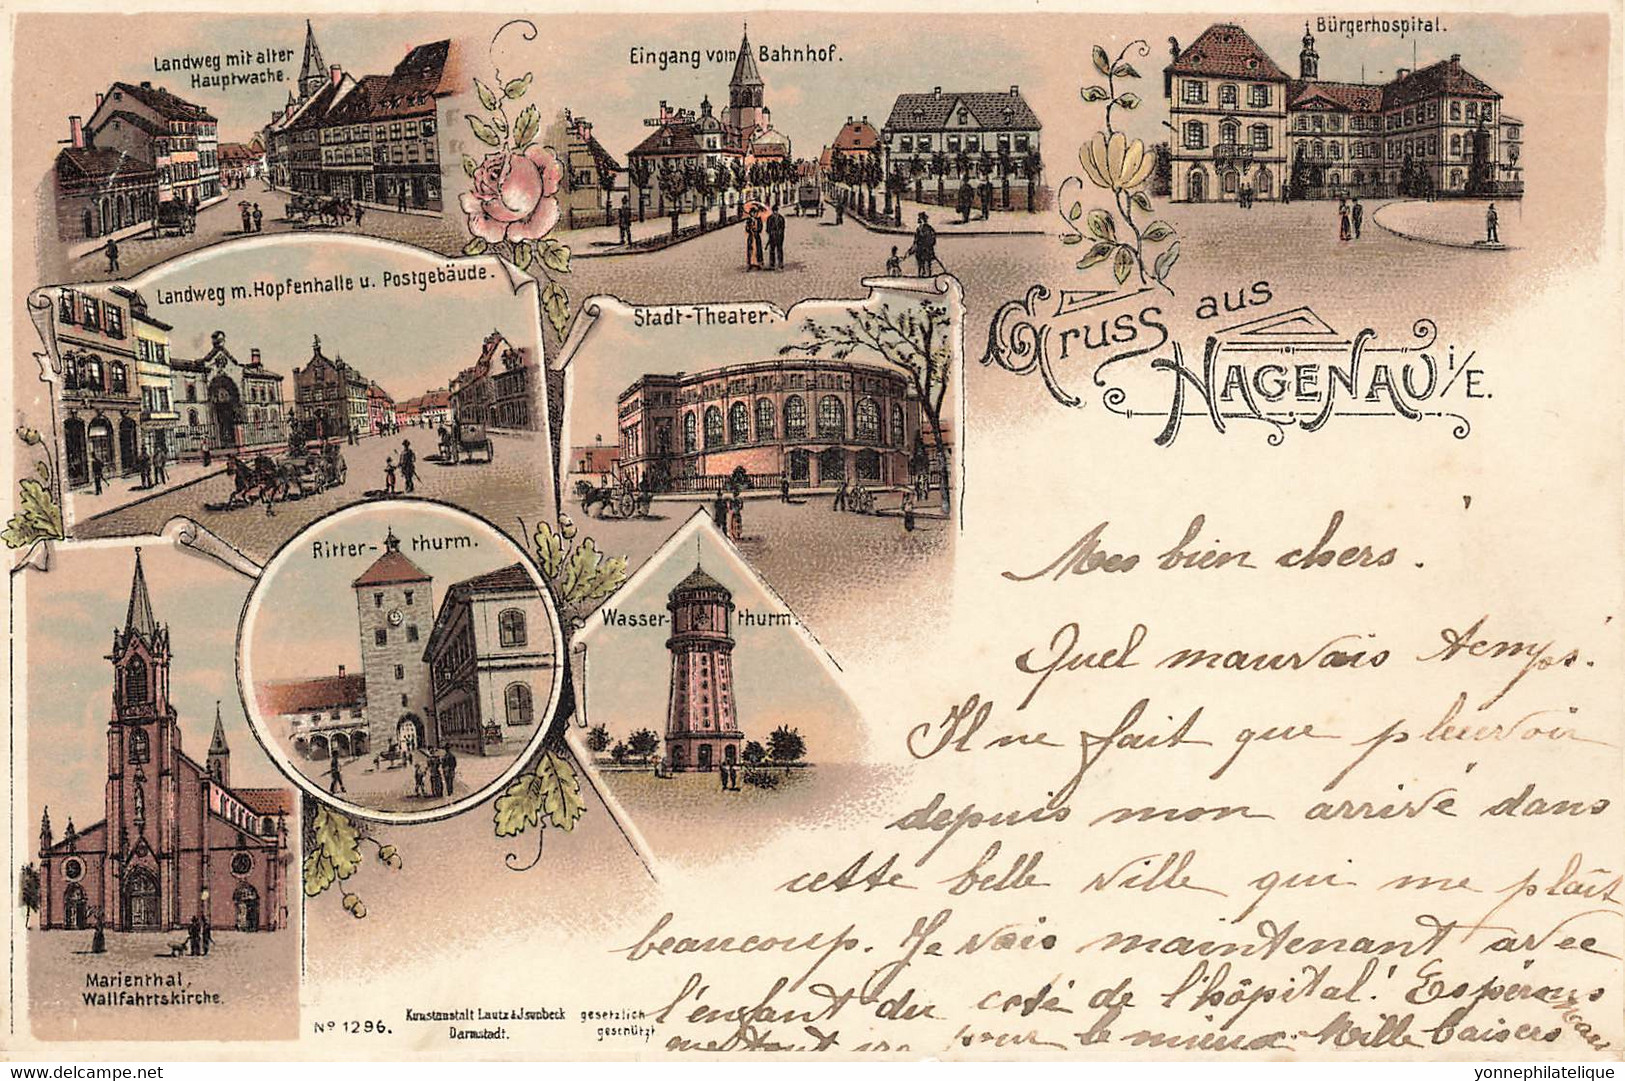 Landweg mit alter
Hauptwache.
Eingang vom Bahnhof.
Bürgerhospital.
Landweg m. Hopfenhalle u. Postgebäude.
Stadt-Theater.
Gruss aus
HAGENAU i/E.
Ritter-thurm.
Wasser-thurm.
Marienthal,
Wallfahrtskirche.
Nº 1296.
Kunstanstalt Lautz & Isenbeck
Darmstadt.
gesetzlich
geschützt
Mes bien chers.
Quel mauvais temps.
Il ne fait que pleuvoir
depuis mon arrivé dans
cette belle ville qui me plaît
beaucoup. Je vais maintenant avec
l'enfant du coté de l'hôpital! Espérons
que tout ira pour le mieux. Mille baisers
yonnephilatelique